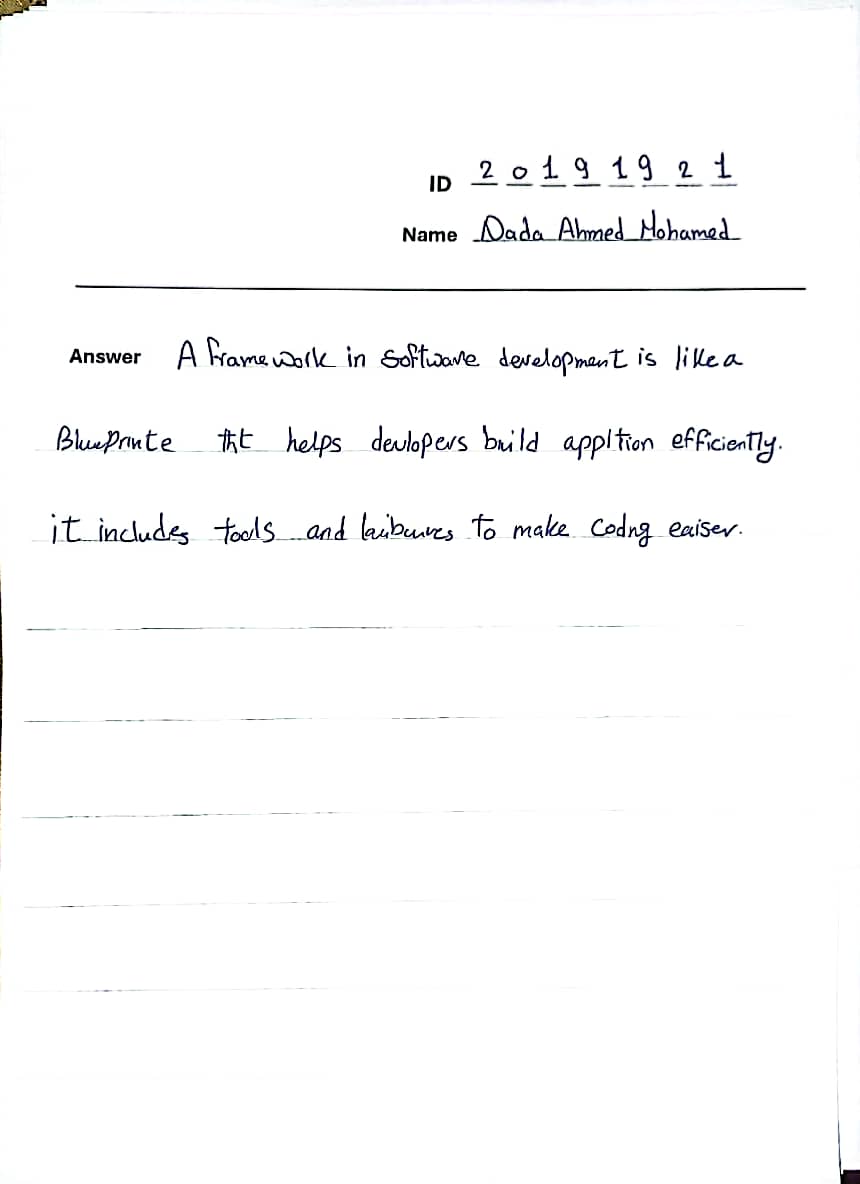 ID 2 0 1 9 1 9 2 1
Name Dada Ahmed Mohamed
Answer A framework in software development is like a
BluePrinte tht helps devlopers build appltion efficiently.
it includes tools and to make codng eaiser.